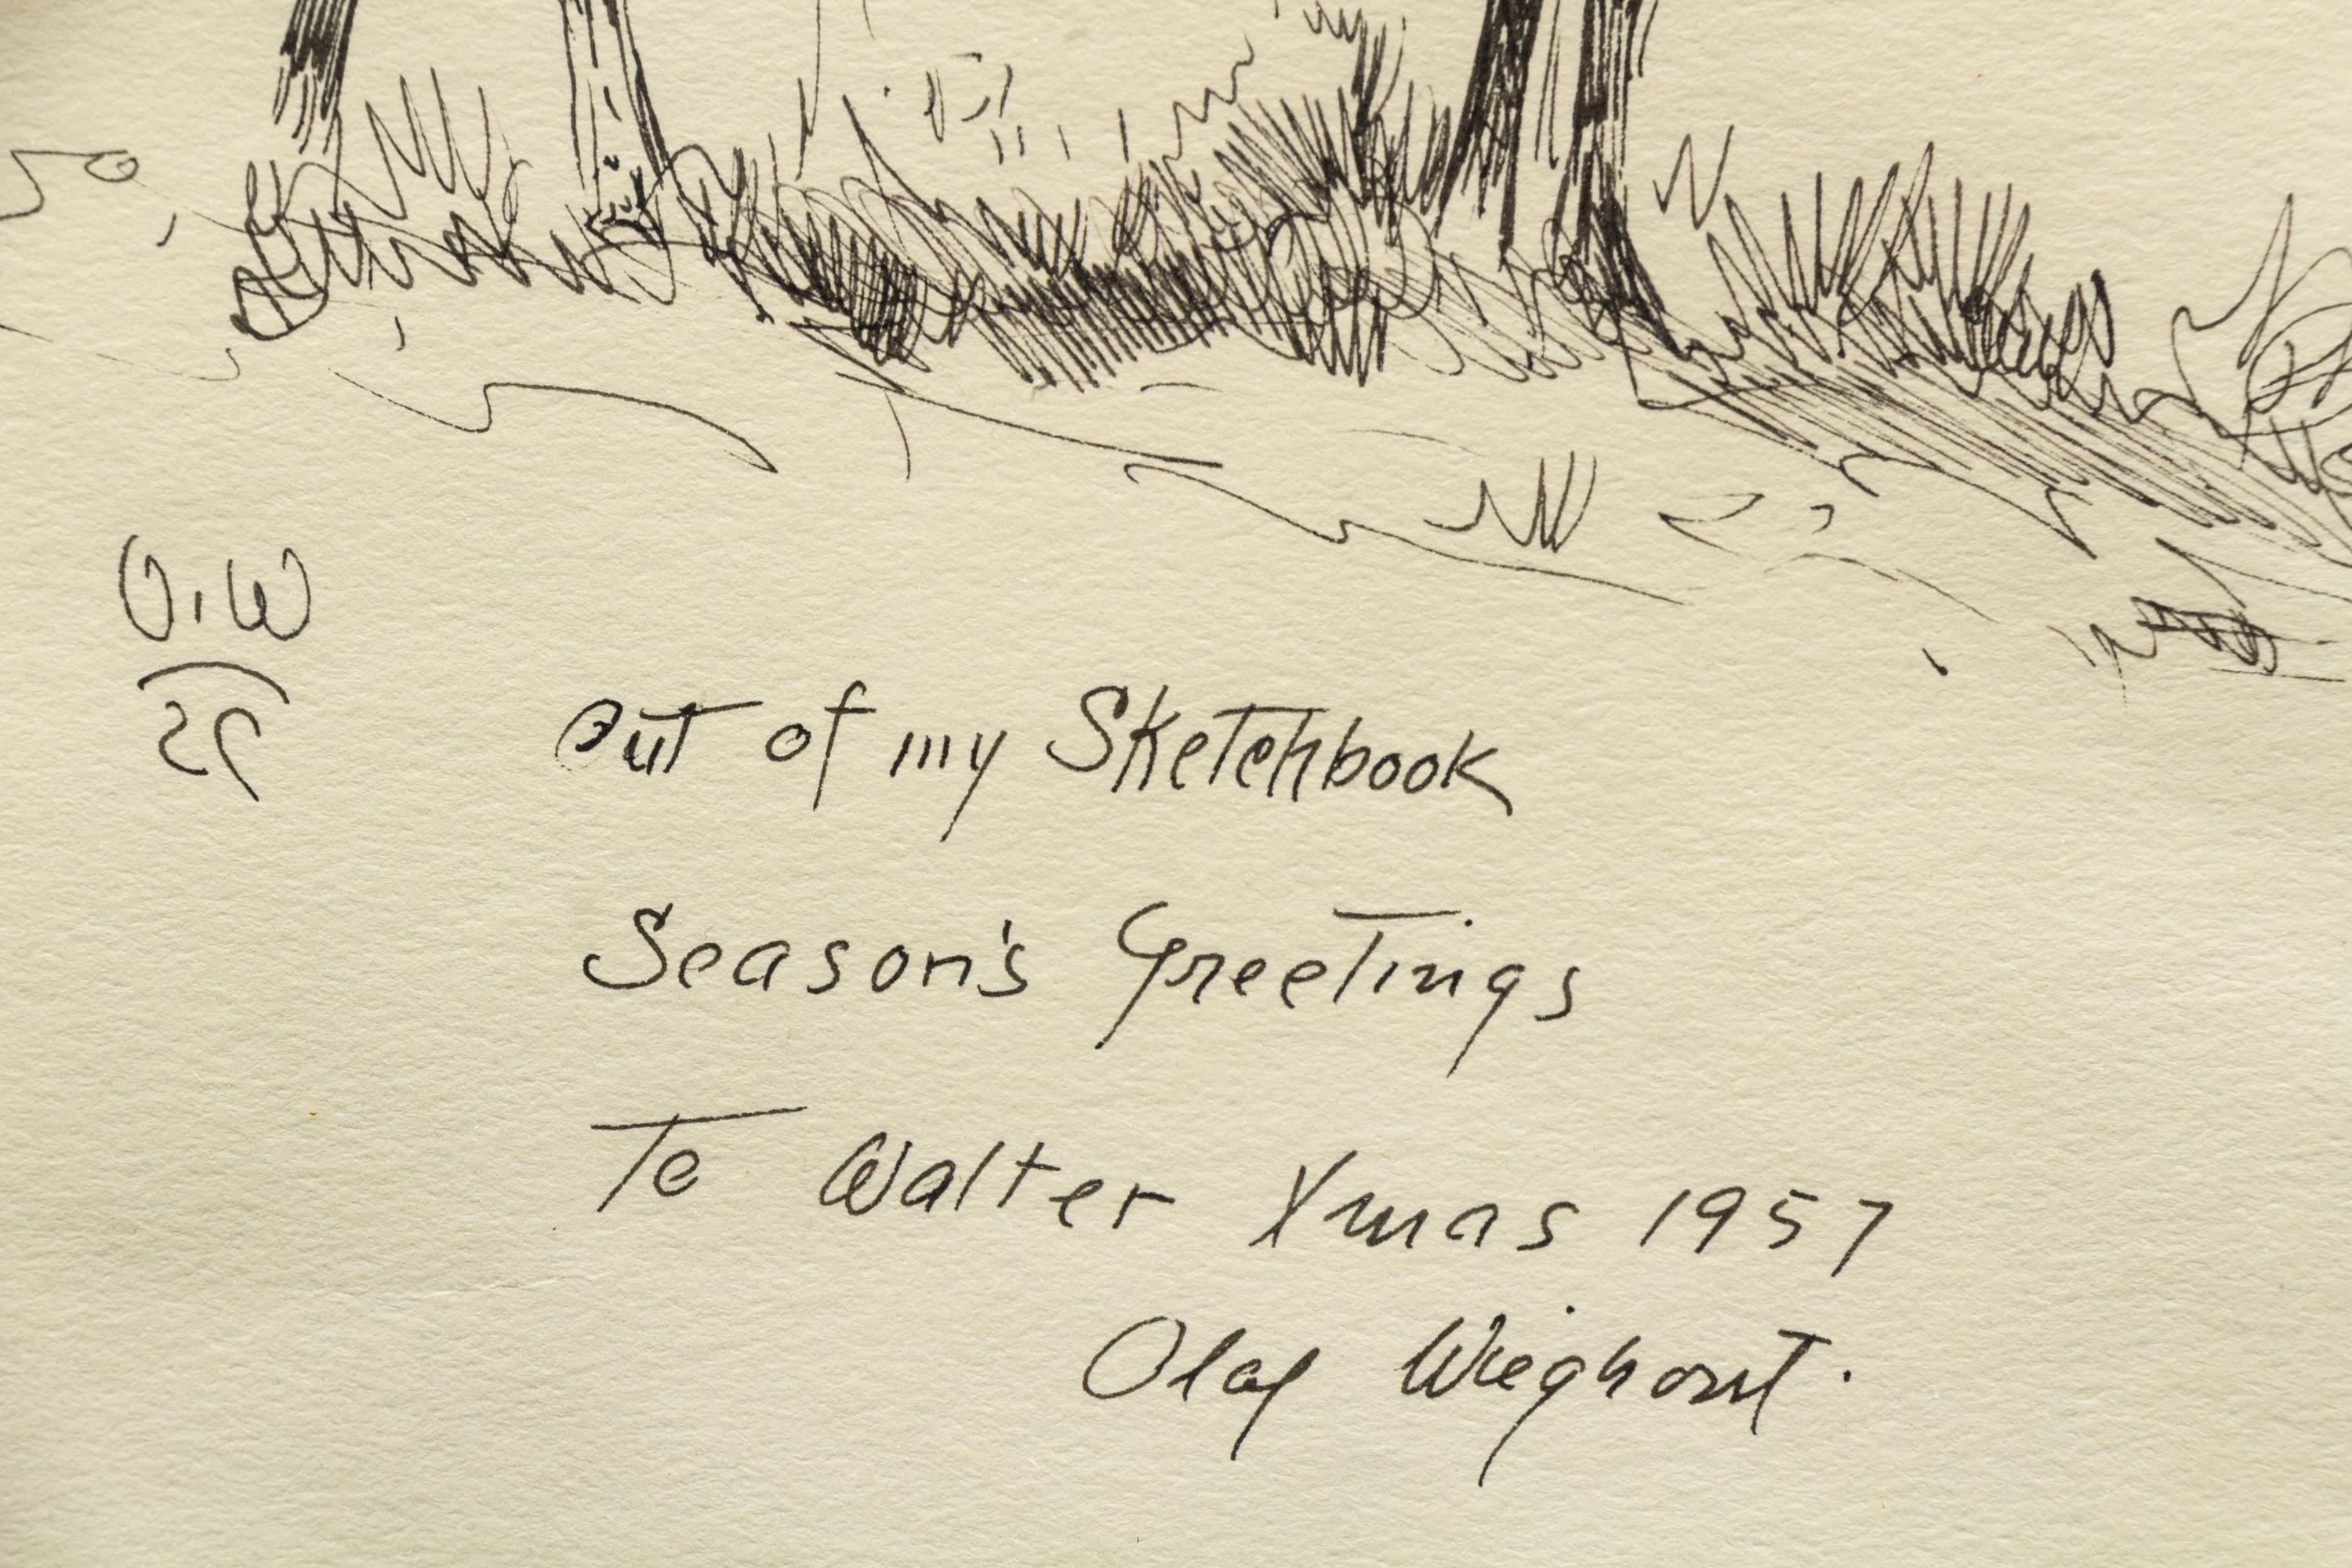 O.W
out of my Sketchbook
Season's Greetings
To Walter Xmas 1957
Olaf Wieghorst.